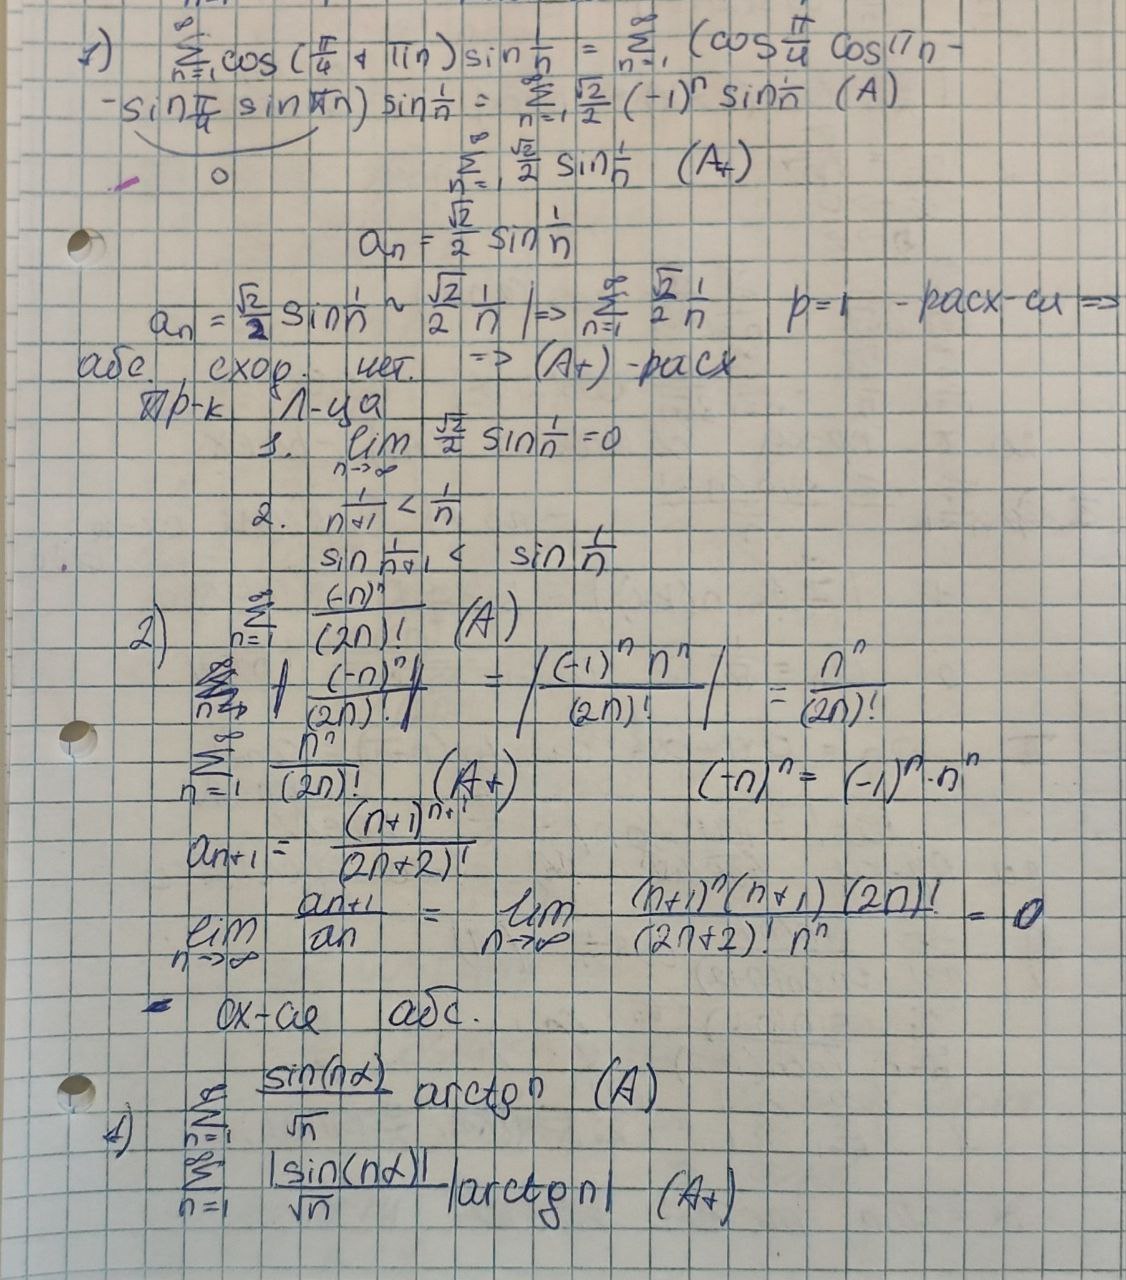 1) ∑_{n=1}^{∞} cos(π/4 + πn) sin 1/n = ∑_{n=1}^{∞} (cos π/4 cos πn -
- sin π/4 sin πn) sin 1/n = ∑_{n=1}^{∞} √2/2 (-1)^n sin 1/n (A)
0 ∑_{n=1}^{∞} √2/2 sin 1/n (A+)
a_n = √2/2 sin 1/n
a_n = √2/2 sin 1/n ~ √2/2 1/n |=> ∑_{n=1}^{∞} √2/2 1/n p=1 - расх-ся =>
абс. сход. нет. => (A+) - расх
Пр-к Л-ца
1. lim_{n→∞} √2/2 sin 1/n = 0
2. 1/(n+1) < 1/n
sin 1/(n+1) < sin 1/n
2) ∑_{n=1}^{∞} (-n)^n/(2n)! (A)
|(-n)^n/(2n)!| = |(-1)^n n^n/(2n)!| = n^n/(2n)!
∑_{n=1}^{∞} n^n/(2n)! (A+) (-n)^n = (-1)^n · n^n
a_{n+1} = (n+1)^{n+1}/(2n+2)!
lim_{n→∞} a_{n+1}/a_n = lim_{n→∞} (n+1)^n (n+1) (2n)!/((2n+2)! n^n) = 0
- сх-ся абс.
∑_{n=1}^{∞} sin(nα)/√n arctg n (A)
∑_{n=1}^{∞} |sin(nα)|/√n |arctg n| (A+)